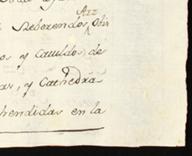 Arz
Reberendos Obis
os y Cavildos de
as, y Cathedra
hendidas en la